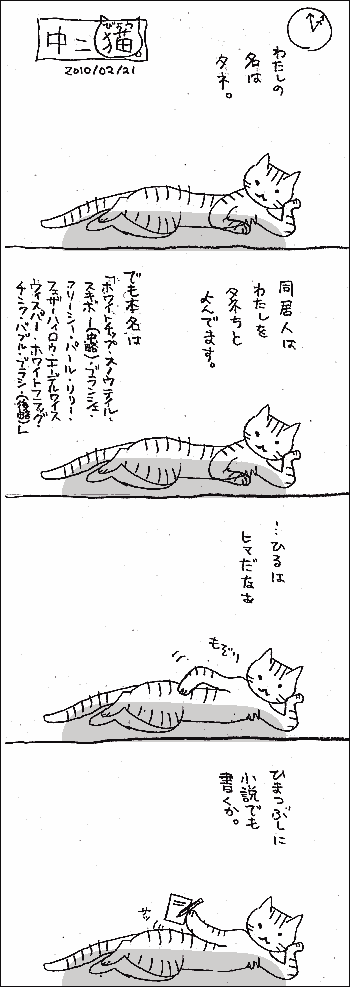 中二猫。
びょう
2010/02/21
わたしの
名は
タネ。
同居人は
わたしを
タネちと
よんでます。
でも本名は
「ホワイトチップ・スノウテイル・
スキポー(中略)・ブランシェ・
フリーシー・パール・リリー・
フェザーハイロウ・エーデルワイス
ウィスパー・ホワイトフラッグ・
チンク・バブル・ブラシ・(後略)」
…ひるは
ヒマだなあ
もぞり
ひまつぶしに
小説でも
書くか。
サッ